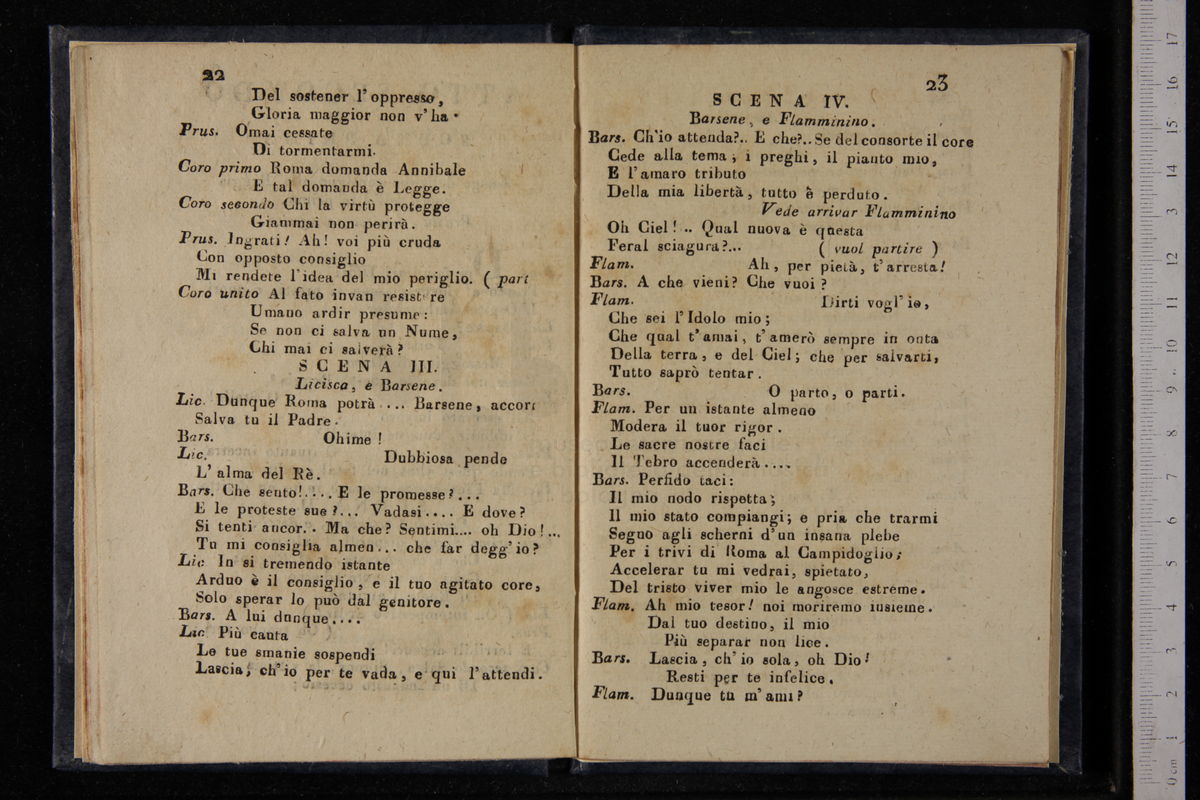 22
Del sostener l'oppresso,
Gloria maggior non v'ha.
Prus. Omai cessate
Di tormentarmi.
Coro primo Roma domanda Annibale
E tal domanda è Legge.
Coro secondo Chi la virtù protegge
Giammai non perirà.
Prus. Ingrati! Ah! voi più cruda
Con opposto consiglio
Mi rendete l'idea del mio periglio. ( part
Coro unito Al fato invan resistere
Umano ardir presume:
Se non ci salva un Nume,
Chi mai ci salverà?
SCENA III.
Licisca, e Barsene.
Lic. Dunque Roma potrà .... Barsene, accorr
Salva tu il Padre.
Bars. Ohime!
Lic. Dubbiosa pende
L'alma del Rè.
Bars. Che sento!.... E le promesse?...
E le proteste sue?... Vadasi.... E dove?
Si tenti ancor.. Ma che? Sentimi.... oh Dio!...
Tu mi consiglia almen... che far degg'io?
Lic. In si tremendo istante
Arduo è il consiglio, e il tuo agitato core,
Solo sperar lo può dal genitore.
Bars. A lui dunque....
Lic. Più cauta
Le tue smanie sospendi
Lascia, ch'io per te vada, e qui l'attendi.
23
SCENA IV.
Barsene, e Flamminino.
Bars. Ch'io attenda?.. E che?.. Se del consorte il core
Cede alla tema; i preghi, il pianto mio,
E l'amaro tributo
Della mia libertà, tutto è perduto.
Vede arrivar Flamminino
Oh Ciel! .. Qual nuova è questa
Feral sciagura?... ( vuol partire )
Flam. Ah, per pietà, t'arresta!
Bars. A che vieni? Che vuoi?
Flam. Dirti vogl'io,
Che sei l'Idolo mio;
Che qual t'amai, t'amerò sempre in onta
Della terra, e del Ciel; che per salvarti,
Tutto saprò tentar.
Bars. O parto, o parti.
Flam. Per un istante almeno
Modera il tuor rigor.
Le sacre nostre faci
Il Tebro accenderà....
Bars. Perfido taci:
Il mio nodo rispetta;
Il mio stato compiangi; e pria che trarmi
Segno agli scherni d'un insana plebe
Per i trivi di Roma al Campidoglio;
Accelerar tu mi vedrai, spietato,
Del tristo viver mio le angosce estreme.
Flam. Ah mio tesor! noi moriremo insieme.
Dal tuo destino, il mio
Più separar non lice.
Bars. Lascia, ch'io sola, oh Dio!
Resti per te infelice.
Flam. Dunque tu m'ami?
0 cm 1 2 3 4 5 6 7 8 9 10 11 12 3 14 15 16 17